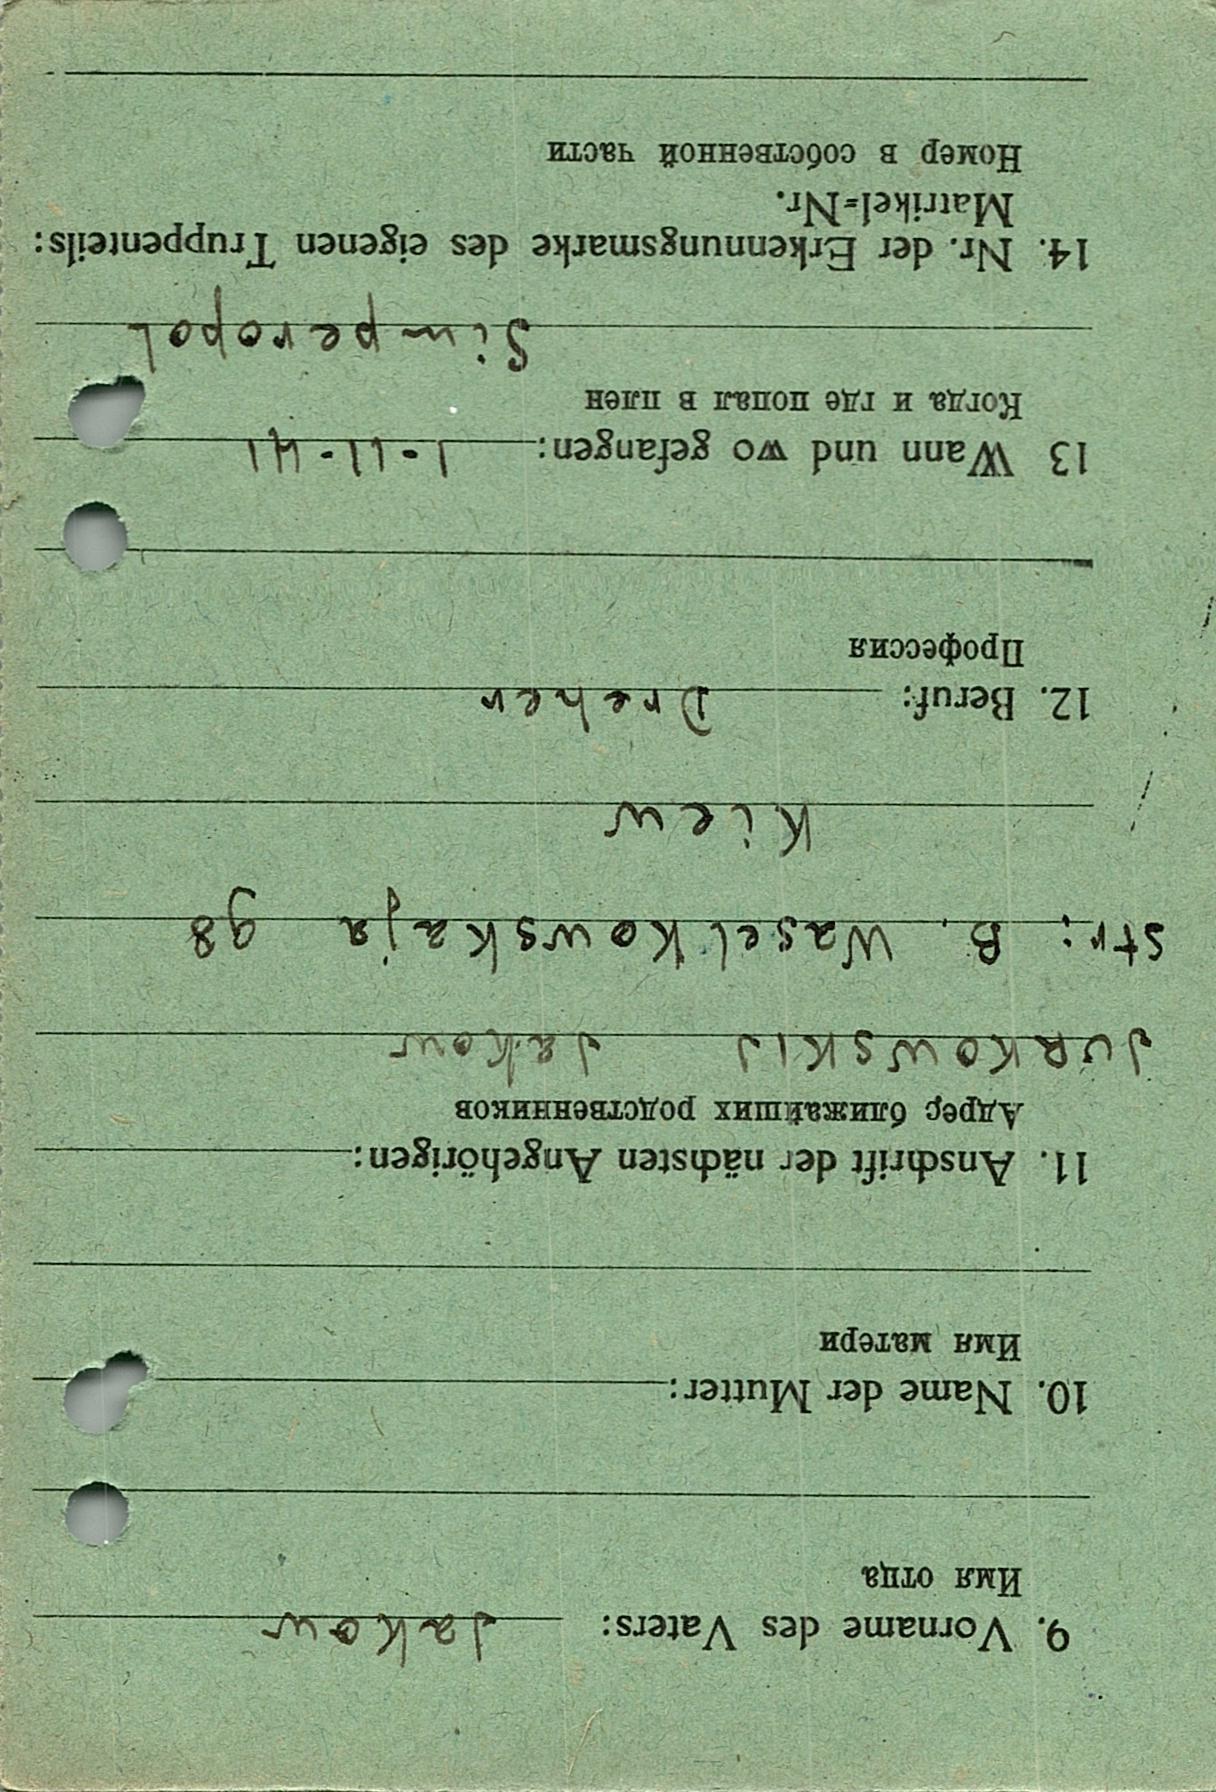 9. Vorname des Vaters: Jakow
Имя отца
10. Name der Mutter:
Имя матери
11. Anschrift der nächsten Angehörigen:
Адрес ближайших родственников
Jurkowskij Jakow
str: B. Waselkowskaja 98
Kiew
12. Beruf: Dreher
Профессия
13 Wann und wo gefangen: 1-11-41
Когда и где попал в плен
Simperopol
14. Nr. der Erkennungsmarke des eigenen Truppenteils:
Matrikel=Nr.
Номер в собственной части